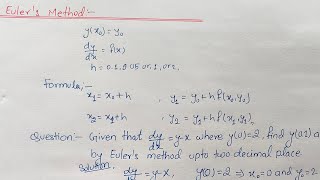 Euler's Method:-
y(x₀) = y₀
dy/dx = f(x)
h = 0.1, 0.05 or, 1, or 2.
Formula:-
x₁ = x₀+h , y₁ = y₀+h f(x₀,y₀)
x₂ = x₁+h , y₂ = y₁+h f(x₁,y₁)
Question:- Given that dy/dx = y-x where y(0)=2, find y(0.2) a
by Euler's method upto two decimal place
Solution, dy/dx = y-x, y(0)=2 ⇒ x₀=0 and y₀=2